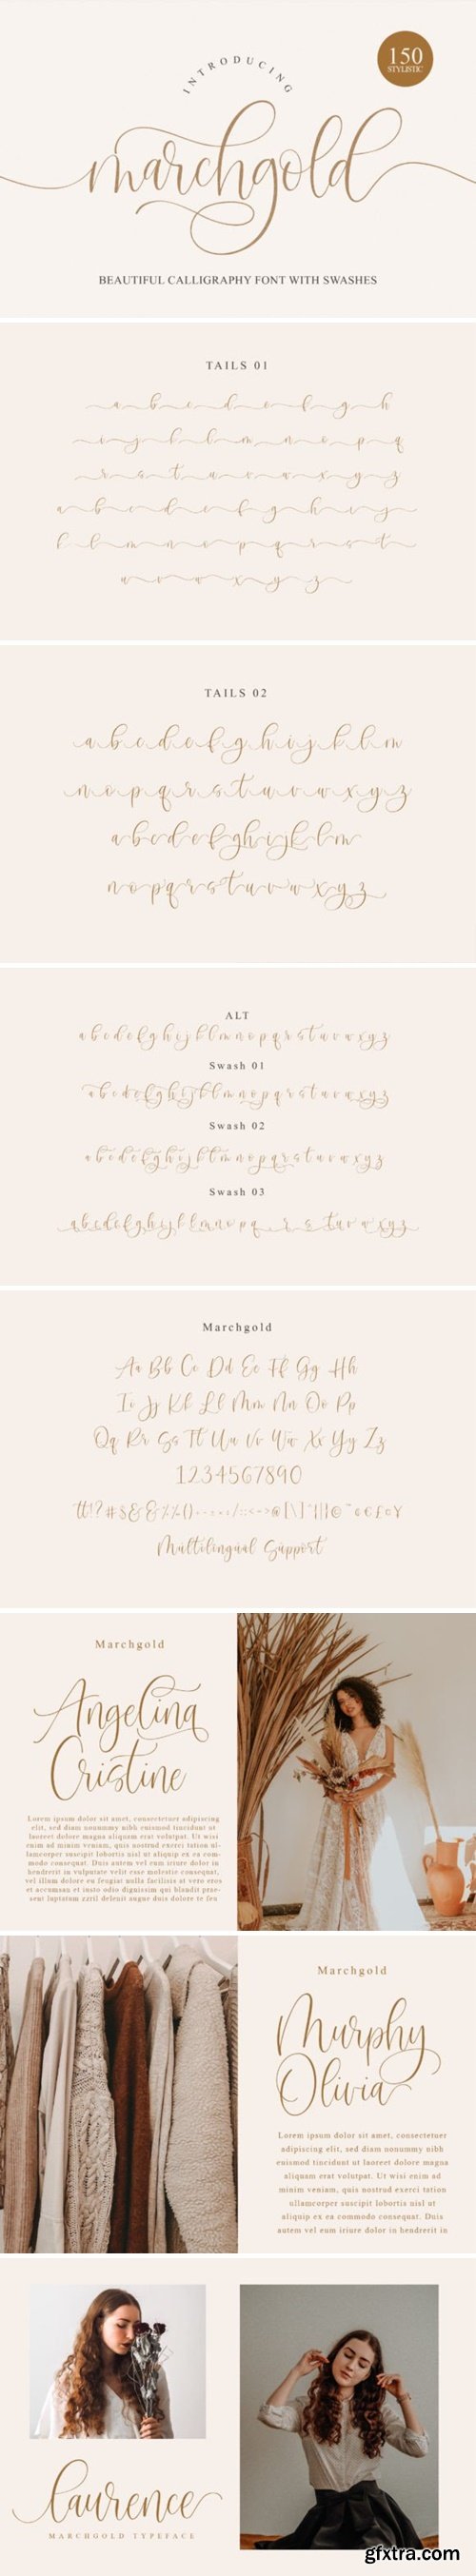 INTRODUCING
150
STYLISTIC
marchgold
BEAUTIFUL CALLIGRAPHY FONT WITH SWASHES
TAILS 01
a b c d e f g h
i j k l m n o p q
r s t u v w x y z
a b c d e f g h i j
k l m n o p q r s t
u v w x y z
TAILS 02
a b c d e f g h i j k l m
n o p q r s t u v w x y z
a b c d e f g h i j k l m
n o p q r s t u v w x y z
ALT
a b c d e f g h i j k l m n o p q r s t u v w x y z
Swash 01
a b c d e f g h i j k l m n o p q r s t u v w x y z
Swash 02
a b c d e f g h i j k l m n o p q r s t u v w x y z
Swash 03
a b c d e f g h i j k l m n o p q r s t u v w x y z
Marchgold
Aa Bb Cc Dd Ee Ff Gg Hh
Ii Jj Kk Ll Mm Nn Oo Pp
Qq Rr Ss Tt Uu Vv Ww Xx Yy Zz
1234567890
Multilingual Support
Marchgold
Angelina
Cristine
Lorem ipsum dolor sit amet, consectetuer adipiscing
elit, sed diam nonummy nibh euismod tincidunt ut
laoreet dolore magna aliquam erat volutpat. Ut wisi
enim ad minim veniam, quis nostrud exerci tation ul-
lamcorper suscipit lobortis nisl ut aliquip ex ea com-
modo consequat. Duis autem vel eum iriure dolor in
hendrerit in vulputate velit esse molestie consequat,
vel illum dolore eu feugiat nulla facilisis at vero eros
et accumsan et iusto odio dignissim qui blandit prae-
sent luptatum zzril delenit augue duis dolore te feu
Marchgold
Murphy
Olivia
Lorem ipsum dolor sit amet, consectetuer
adipiscing elit, sed diam nonummy nibh
euismod tincidunt ut laoreet dolore magna
aliquam erat volutpat. Ut wisi enim ad
minim veniam, quis nostrud exerci tation
ullamcorper suscipit lobortis nisl ut
aliquip ex ea commodo consequat. Duis
autem vel eum iriure dolor in hendrerit in
laurence
MARCHGOLD TYPEFACE
gfxtra.com